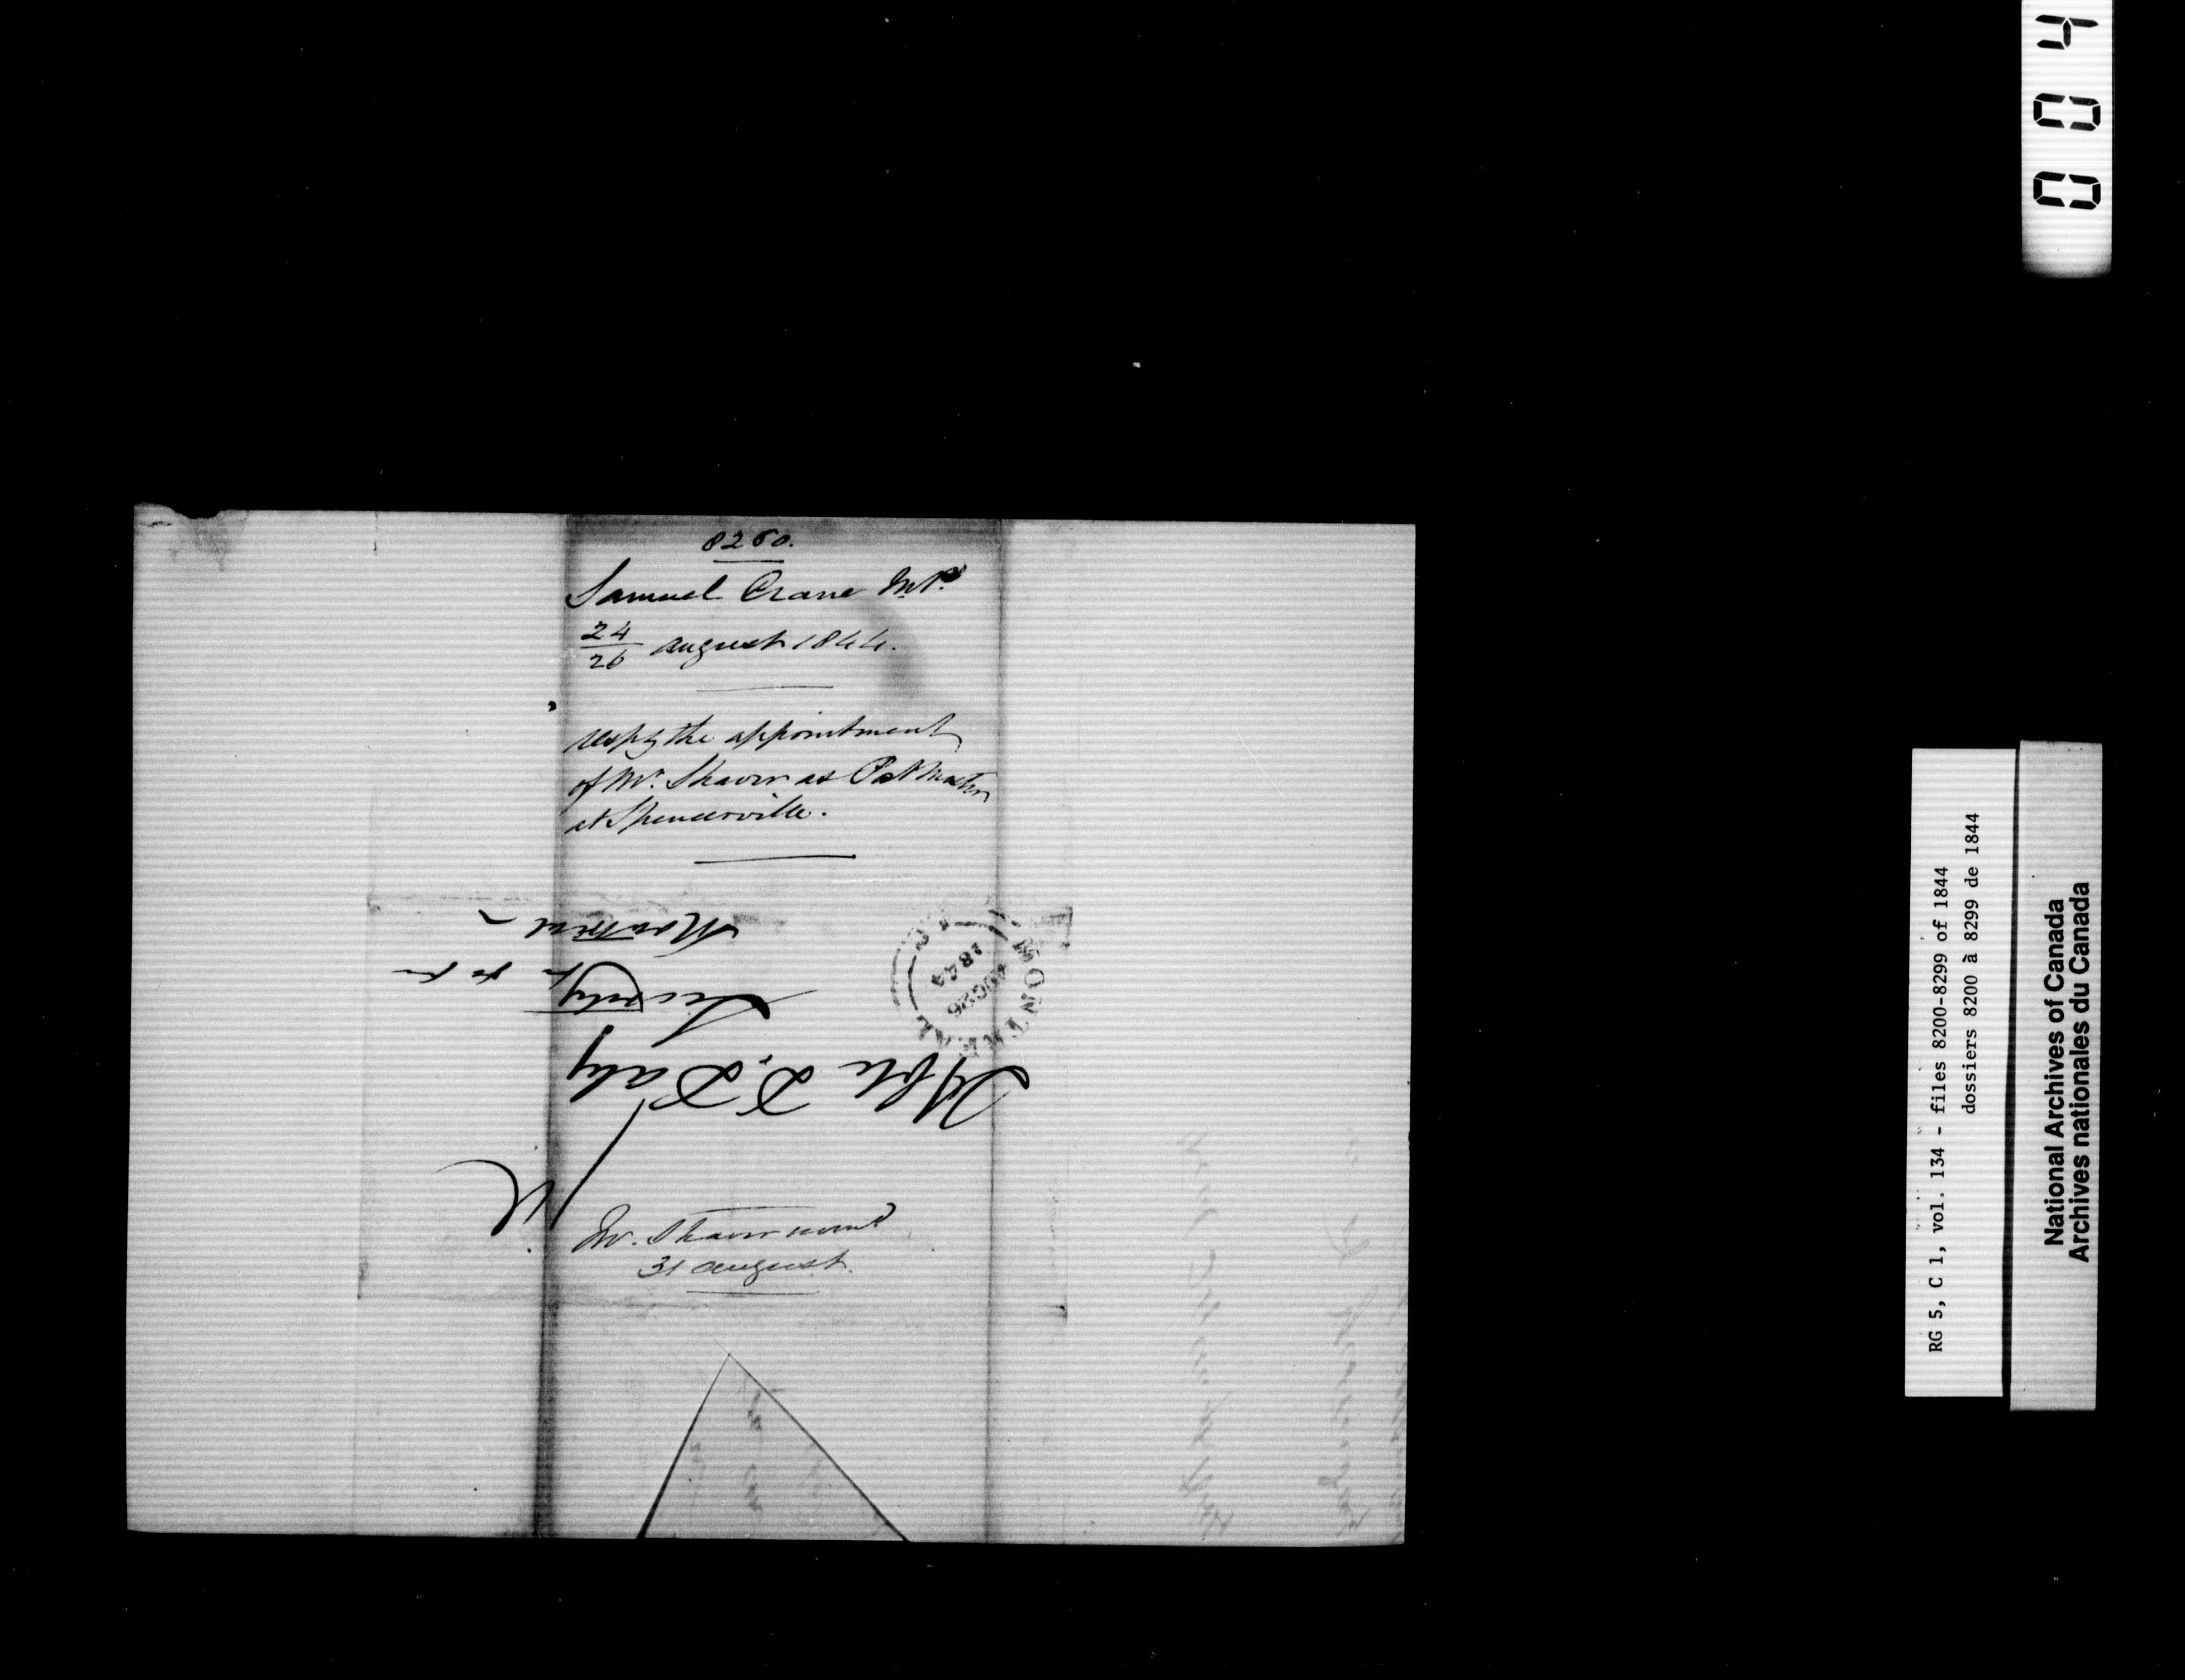 8260.
Samuel Crane M.P.
24/26 august 1844.
respg the appointment
of Mr. Shaver as Post Master
at Spencerville.
Honble D. Daly
Secretary &c &c
Montreal
MONTREAL L.C.
AUG 26
1844
Mr. Shaver
31 august.
004
RG 5, C 1, vol. 134 - files 8200-8299 of 1844
dossiers 8200 à 8299 de 1844
National Archives of Canada
Archives nationales du Canada